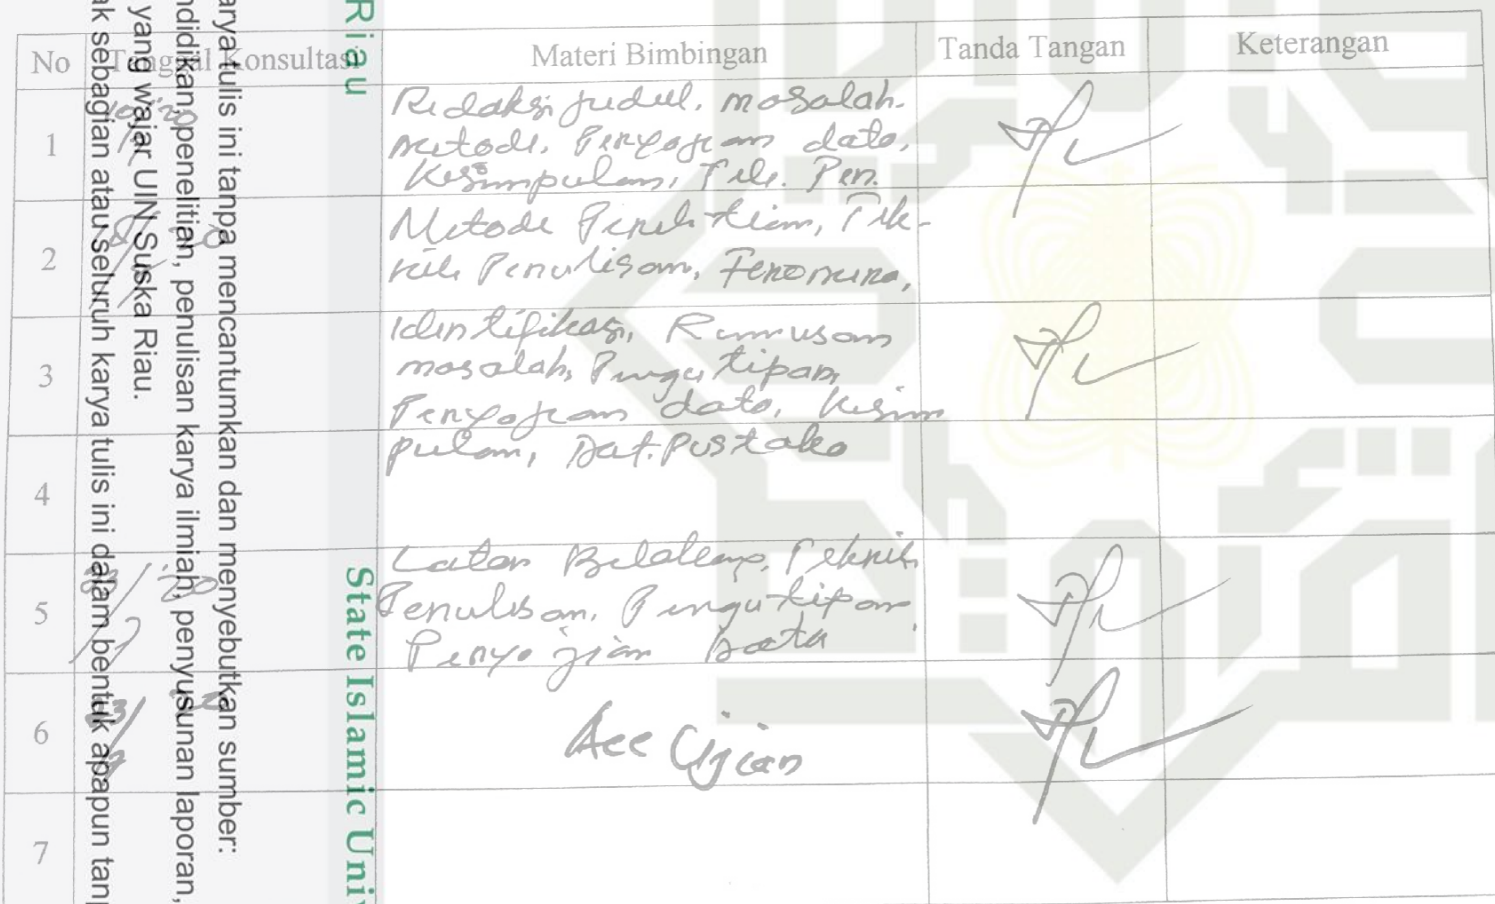 No Tanggal Konsultasi Materi Bimbingan Tanda Tangan Keterangan
1 Redaksi judul, masalah.
metode, Penyajian data,
Kesimpulan, Tek. Pen.
2 Metode Penelitian, Tek-
nik Penulisan, Fenomena,
3 Identifikasi, Rumusan
masalah, Pengutipan
Penyajian data, Kesim
pulan, Daf. Pustaka
4
5 Latar Belakang, Teknik
Penulisan, Pengutipan
Penyajian Data
6 Acc Ujian
7
Riau
State Islamic Uni
arya tulis ini tanpa mencantumkan dan menyebutkan sumber:
ndidikan, penelitian, penulisan karya ilmiah, penyusunan laporan,
yang wajar UIN Suska Riau.
ak sebagian atau seluruh karya tulis ini dalam bentuk apapun tanp